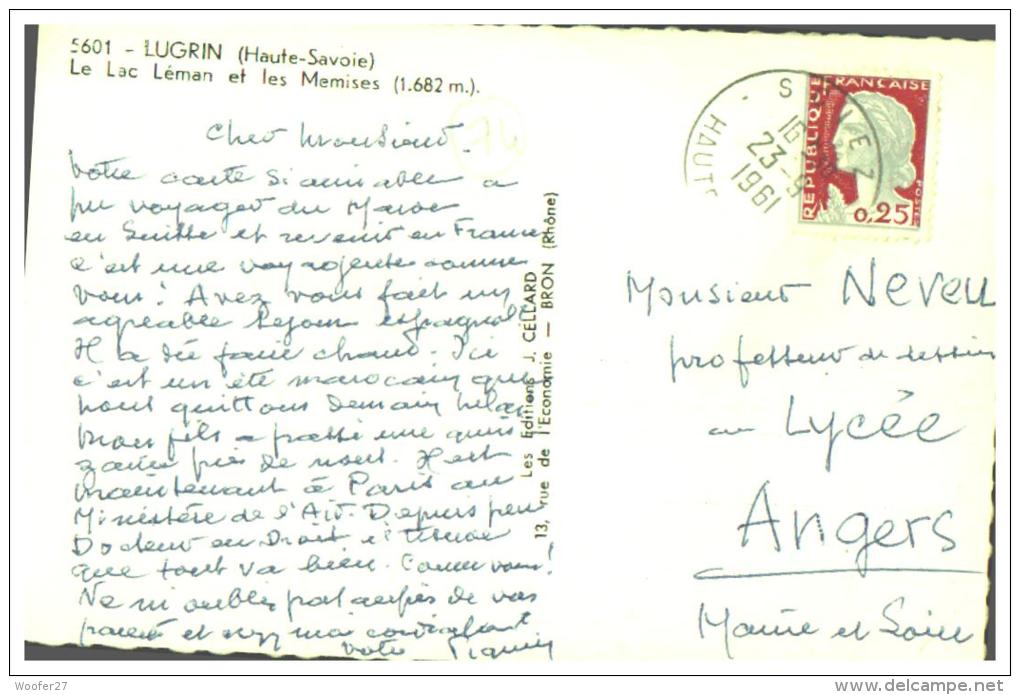 5601 - LUGRIN (Haute-Savoie)
Le Lac Léman et les Memises (1.682 m.).
74
Cher Monsieur.
Votre carte si aimable a
pu voyager du Maroc
en Suisse et revenir en France
c'est une voyageuse comme
vous! Avez vous fait un
agréable séjour espagnol?
Il a dû faire chaud. Ici
c'est un été marocain que
nous quittons demain hélas
Mon fils a passé une quin
zaine près de nous. Il est
maintenant à Paris au
Ministère de l'Air. Depuis peu
Docteur en Droit il
que tout va bien. Comme vous!
Ne m'oubliez pas auprès de vos
parents et
votre
Les Editions J. CELLARD
13, rue de l'Economie — BRON (Rhône)
HAUTE
16
23-9
1961
REPUBLIQUE FRANÇAISE
POSTES
0,25
Monsieur Neveu
professeur de dessin
au Lycée
Angers
Maine et Loire
Woofer27
www.delcampe.net